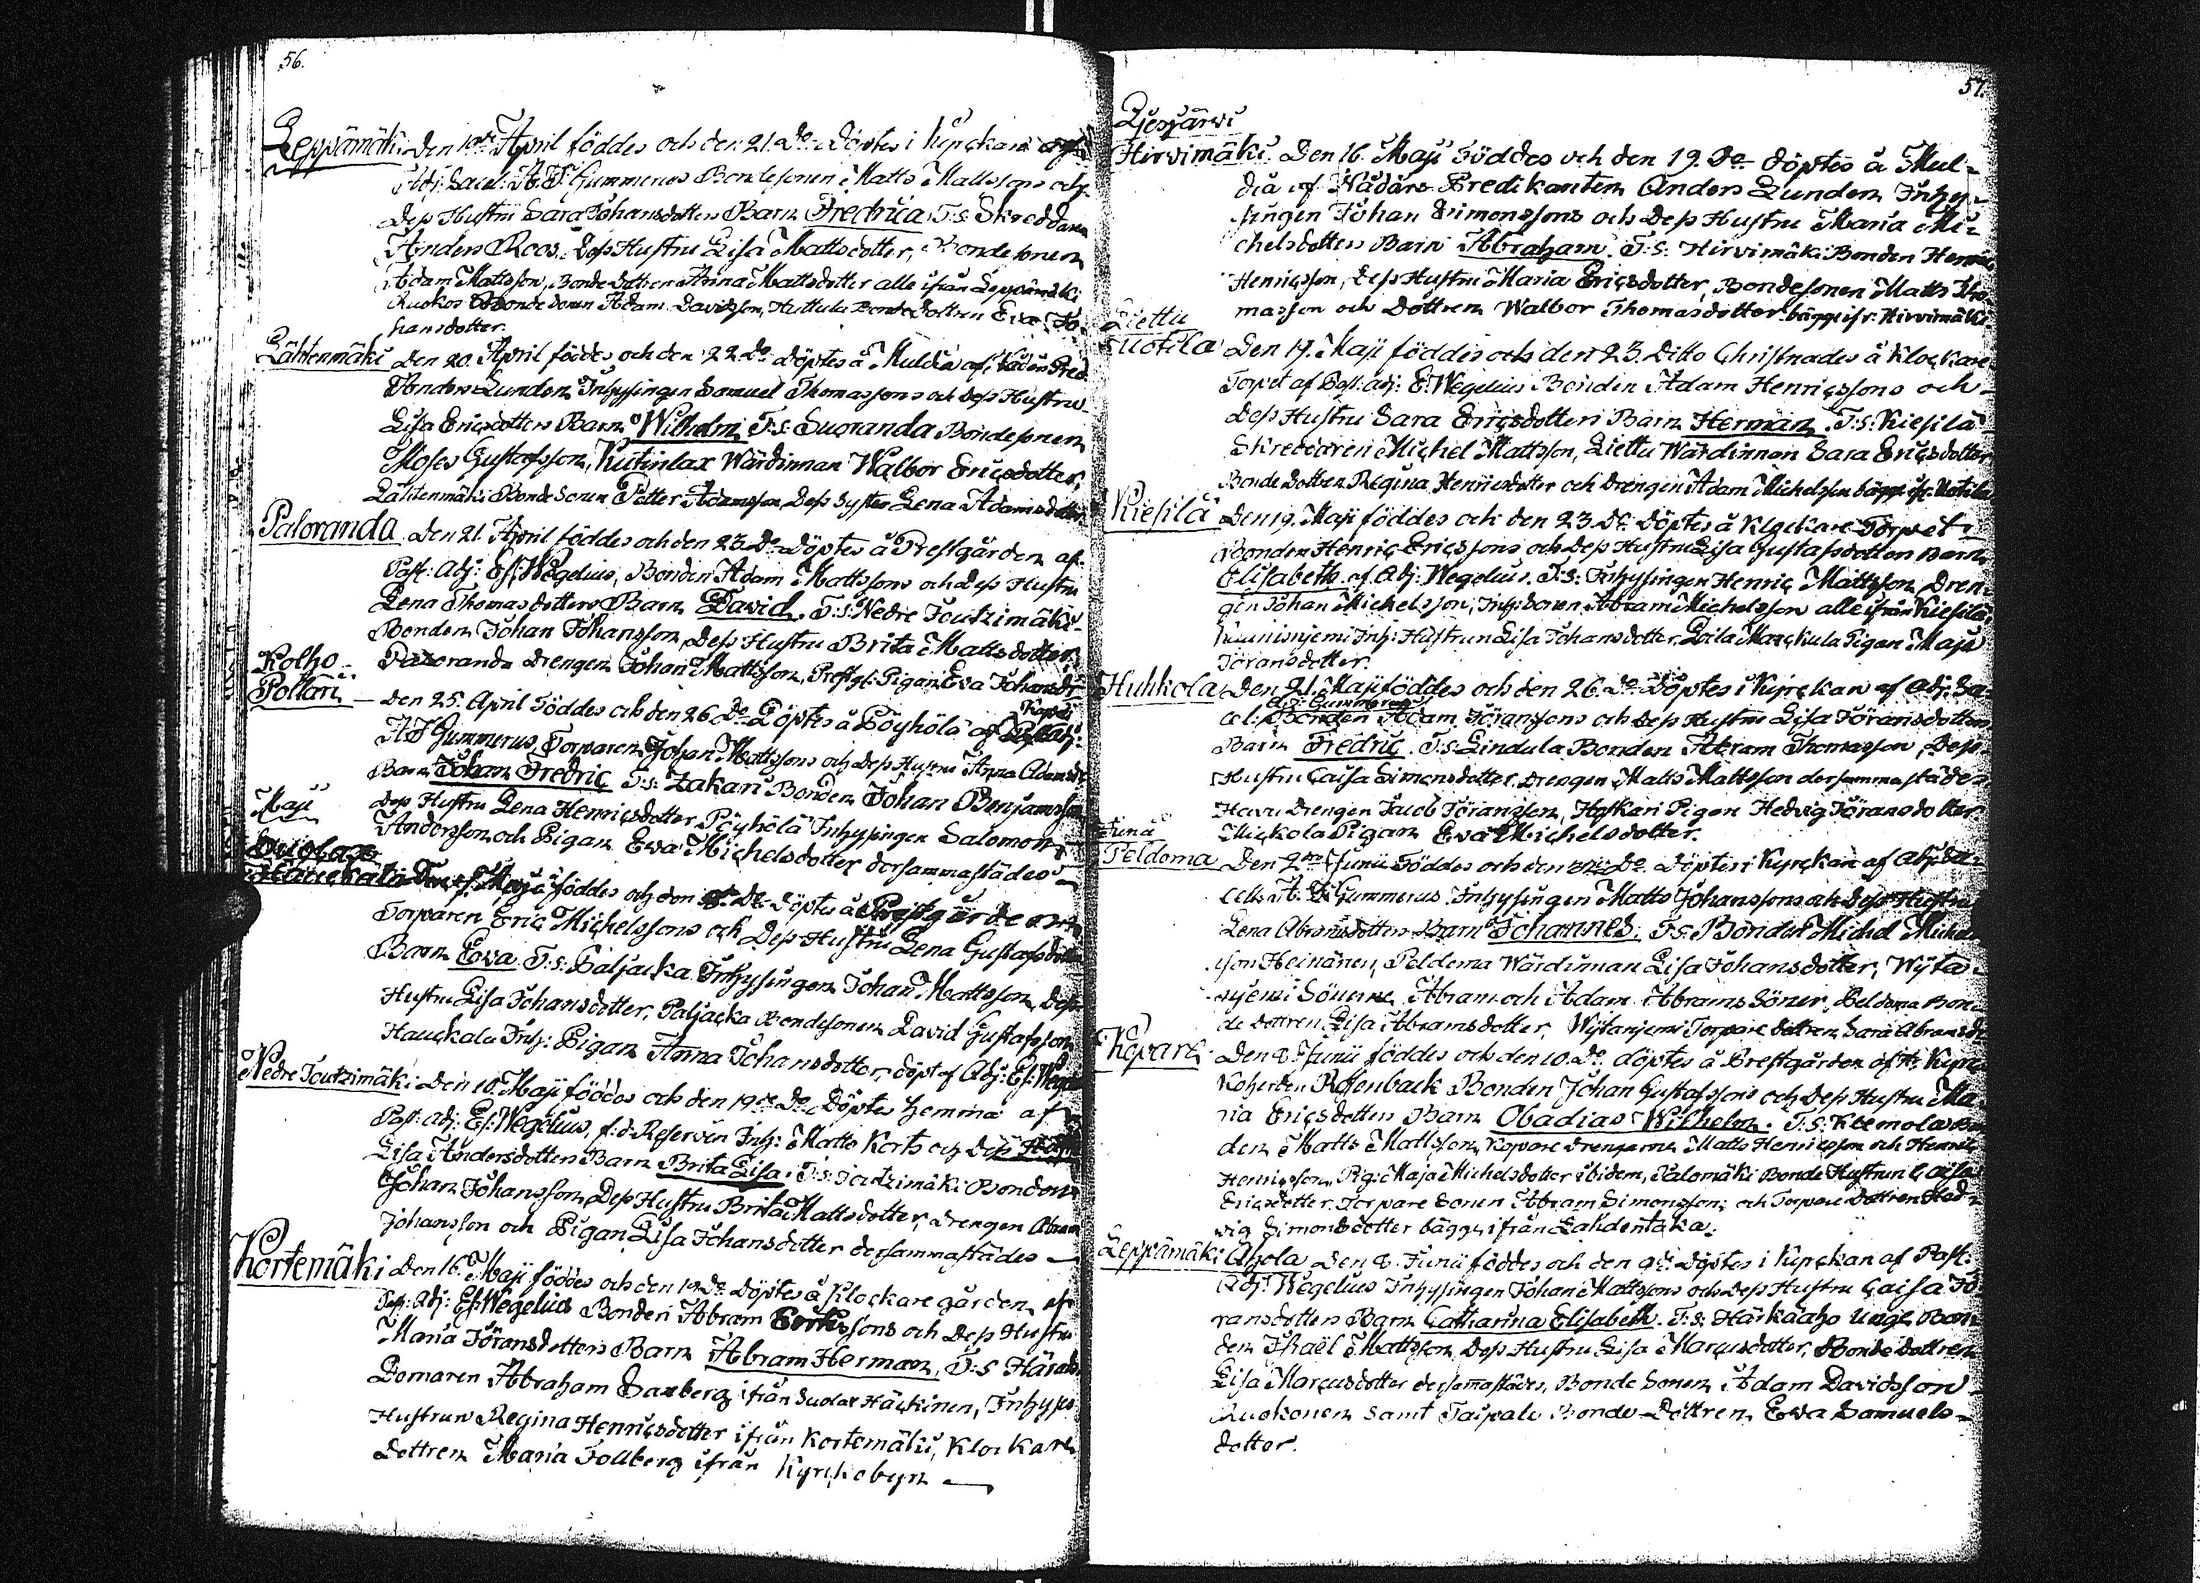 56.
Leppämäki Den 10de April föddes och den 21. Do Döptes i Kyrckan af
Adj: Sacel: A F Gummerus Bondesonen Matts Mattssons och
Dess Hustru Sara Johansdotters Barn Fredrica, T:s: Skreddaren
Anders Roos, Dess Hustru Lisa Mattsdotter, Bondesonen
Adam Mattsson, Bonde Dottren Anna Mattsdotter alle ifrån Leppämäki
Ruokos Bonde Sonen Adam Davidsson, Huttula Bonde Dottren Eva Jo-
hansdotter.
Lähtenmäki Den 20. April föddes och den 22. Do Döptes å Muldia af Nådårs Pred.
Anders Lunden Inhysingen Samuel Thomassons och Dess Hustru
Lisa Ericsdotters Barn Wilhelm T:s: Suoranda Bondesonen
Moses Gustafsson, Kutinlax Wärdinnan Walbor Ericsdotter,
Lähtenmäki Bonde Sonen Petter Adamsson Dess Syster Lena Adamsdotter
Paloranda Den 21. April föddes och den 23. Do Döptes å Prestgården af
Past: Adj: Es: Wegelius, Bonden Adam Mattssons och Dess Hustru
Lena Thomasdotters Barn David. T:s: Nedre Joutzimäki
Bonden Johan Johansson, Dess Hustru Brita Mattsdotter,
Paloranda Drengen Johan Mattsson, Prestg: Pigan Eva Johansdr
Kolho
Pollari Den 25. April Föddes och den 26. Do Döptes å Pöyhölä af
A F Gummerus, Torparen Johan Mattssons och Dess Hustru Anna Adamsdr
Barn Johan Fredric T:s: Zakari Bonden Johan Benjamsson
Dess Hustru Lena Henricsdotter, Pöyhölä Inhysingen Salomon
Andersson och Pigan Eva Michelsdotter dersammastädes
Maji
föddes och den Do Döptes å Prestgården
Torparen Eric Michelssons och Dess Hustru Lena Gustafsdotters
Barn Ewa T:s: Paljacka Inhysingen Johan Mattsson, Dess
Hustru Lisa Johansdotter, Paljacka Bondesonen David Gustafsson
Hauckala Inh: Pigan Anna Johansdotter, döpt af Adj: Es: Wegelius
Nedre Joutzimäki Den 18. Maji föddes och den 19de Do Döptes hemma af
Past: Adj: Es: Wegelius, f: d: Reserven Inh: Matts Korts och Dess Hustru
Lisa Andersdotters Barn Brita Lisa, T:s: Joutzimäki Bonden
Johan Johansson, Dess Hustru Brita Mattsdotter, Drengen Abram
Johansson och Pigan Lisa Johansdotter dersammastädes
Kortemäki Den 16. Maji föddes och den 19. Do Döptes å Klockaregården af
Past: Adj: Es: Wegelius Bonden Abram Erikssons och Dess Hustru
Maria Jöransdotters Barn Abram Herman, T:s Härads
Domaren Abraham Saxberg ifrån Suolax Häckinen, Inhyses
Hustrun Regina Henricsdotter ifrån Kortemäki, Klockare
Dottren Maria Follberg ifrån Kyrckobyn
57.
Liesjärvi
Hirvimäki Den 16. Maji Föddes och den 19. Do döptes å Mul-
dia af Nådårs Predikanten Anders Lunden Inhy-
singen Johan Simonssons och Dess Hustru Maria Mi-
chelsdotters Barn Abraham. T:s: Hirvimäki Bonden Henric
Henricsson, Dess Hustru Maria Ericsdotter, Bondesonen Matts Tho-
masson och Dottren Walbor Thomasdotter bägge ifr: Hirvimäki
Liettu
Uotila Den 17. Maji föddes och den 23. Ditto Christnades å Klockare
Torpet af Past: adj: E: Wegelius Bonden Adam Henricssons och
Dess Hustru Sara Ericsdotters Barn Herman. T:s: Kiesilä
Skreddaren Michel Mattsson, Liettu Wärdinnan Sara Ericsdotter
Bonde Dottren Regina Henricsdotter och Drengen Adam Michelsson bägge ifr. Uotila
Kiesilä Den 19. Maji föddes och den 23. Do Döptes å Klockare Torpet
Bonden Henric Ericssons och Dess Hustru Lisa Gustafsdotters Barn
Elisabeth af Adj: Wegelius. T:s: Inhysingen Henric Mattsson, Dren-
gen Johan Michelsson, Inh: Sonen Abram Michelsson alle ifrån Kiesilä
Inh: Hustrun Lisa Johansdotter, Pigan Maja
Jöransdotter.
Huhkola Den 21. Maji föddes och den 26. Do Döptes i Kyrckan af Adj: Sa-
A: F: Gummerus
cel: Bonden Adam Jöranssons och Dess Hustru Lisa Jöransdotters
Barn Fredric. T:s: Lindula Bonden Abram Thomasson, Dess
Hustru Caisa Simonsdotter, Drengen Matts Mattsson dersammastädes
Havu Drengen Jacob Jöransson, Hoskari Pigan Hedvig Jöransdotter
Mickola Pigan Eva Michelsdotter.
Junii
Peldoma Den 2dra Junii Föddes och den Do Döptes i Kyrckan af Adj: Sa-
cell: A. F. Gummerus. Inhysingen Matts Johanssons och Dess Hustru
Lena Abramsdotters Barn Johannes. T:s: Bonden Michel Michels-
son Heinänen, Peldoma Wärdinnan Lisa Johansdotter, Wyta-
nyemi Sönerne Abram och Adam Abrams Söner, Peldoma Bon-
de Dottren Lisa Abramsdotter, Wytanjemi Torpare Dottren Sara Abramsdr
Kopara Den 8. Junii föddes och den 10. Do döptes å Prestgården af Hr. Kyrc-
koherden Rosenback Bonden Johan Gustafssons och Dess Hustru Ma-
ria Ericsdotters Barn Obadias Wilhelm. T:s: Keemola Bon-
den Matts Mattsson, Kopare Drengarne Matts Henricsson och Henric
Henricsson, Pig: Maja Michelsdotter ibidem, Salomäki Bonde Hustrun Caisa
Ericsdotter Torpare Sonen Abram Simonsson, och Torpare Dottren Hed-
vig Simonsdotter bägge ifrån Lahdentaka.
Leppämäki Ahola Den 8. Junii föddes och den 9de Döptes i Kyrckan af Past:
Adj: Wegelius Inhysingen Johan Mattssons och Dess Hustru Caisa Jö-
ransdotters Barn Catharina Elisabeth. T:s: Härkäaho Ungl: Bon-
den Israël Mattsson, Dess Hustru Lisa Marcusdotter, Bonde dottren
Lisa Marcusdotter dersammastädes, Bonde Sonen Adam Davidsson
Ruokonen samt Taipale Bonde Dottren Ewa Samuels-
dotter.